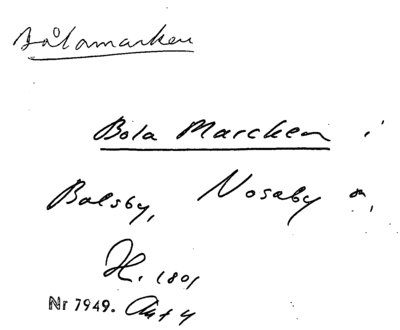 Bålamarken
Bola Marcken i
Balsby, Nosaby sn,
H. 1801
Nr 7949. Akt 4